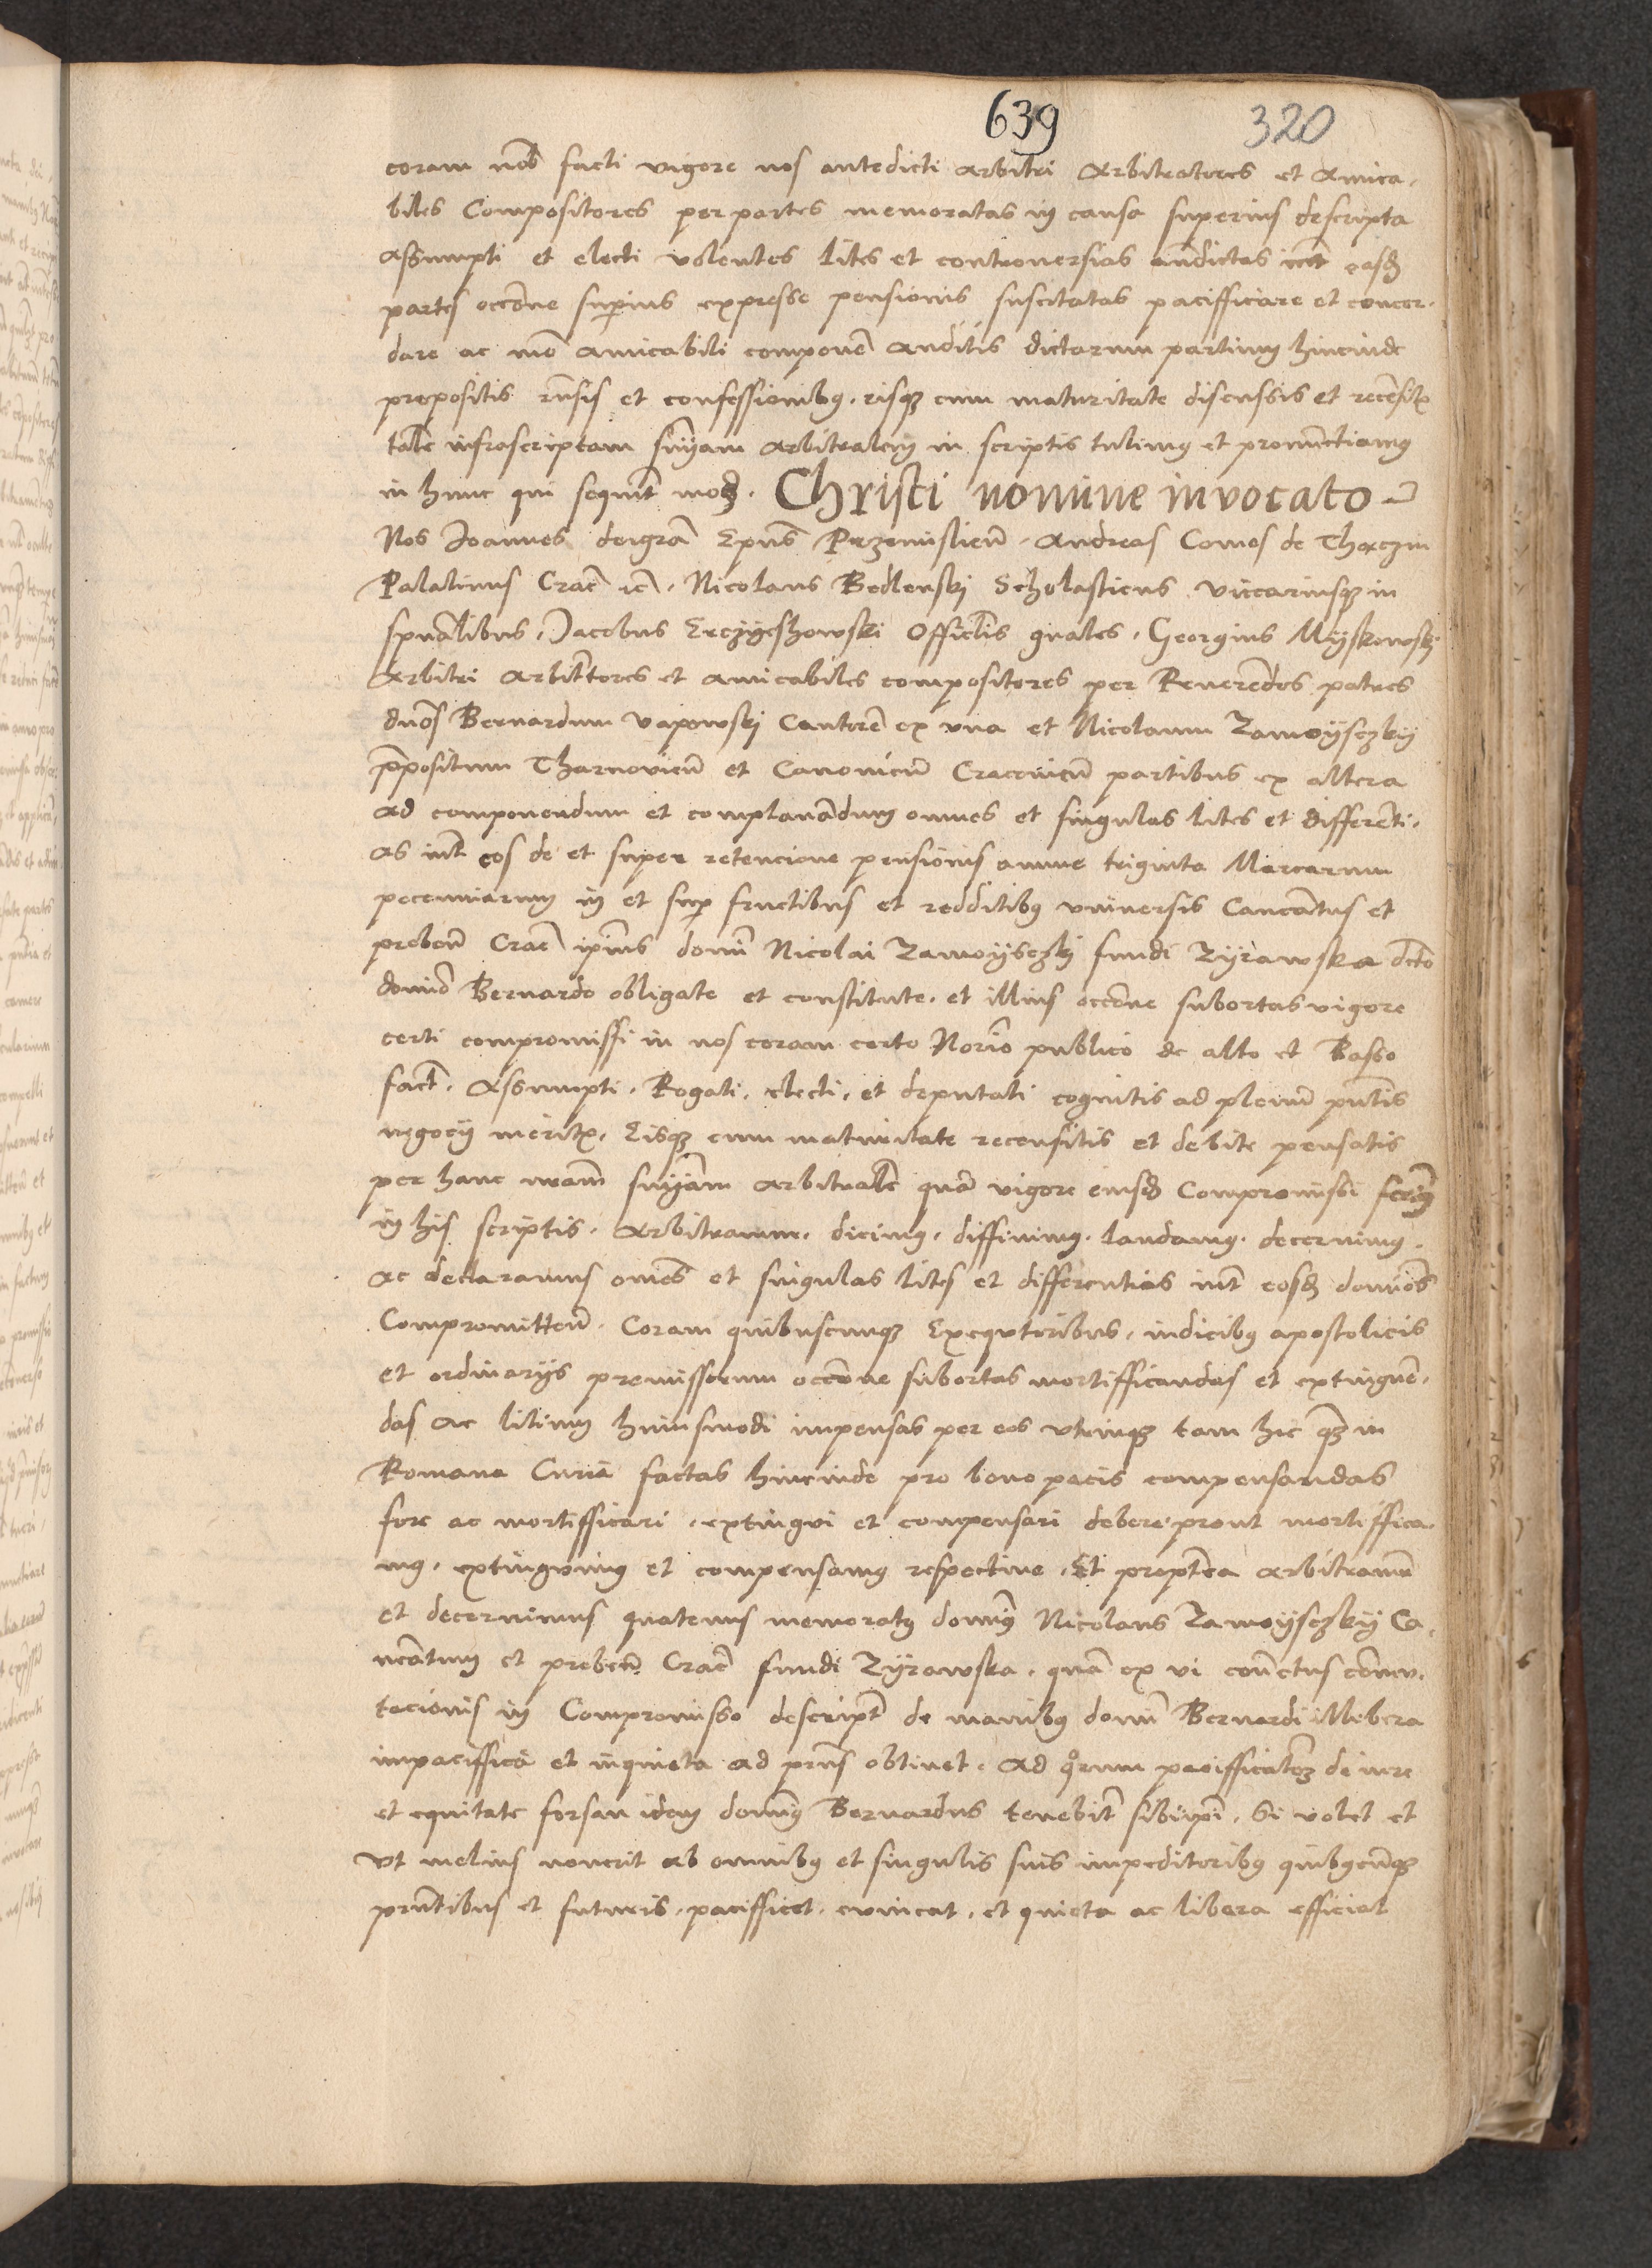 639 320
coram nob facti vigore nos antedicti arbitri Arbitratores et Amica,
biles Compositores per partes memoratas in causa superius descripta
Assumpti et electi volentes lites et controversias andictas int easd
partes occone superius expresse pensionis suscitatas pacifficare et concor,
dare ac mo amicabili componē auditis dictarum partium hincinde
propositis rnsis et confessionibus, eisque cum maturitate discussis et recensitis
talē infrascriptam snīam arbitralem in scriptis tulimus et pronunctiamus
in hunc qui sequit mod. Christi nomine invocato
Nos Joannes dei grā Epus Przemislien. Andreas Comes de Thęczin
Palatinus Crac̄ ec̄. Nicolaus Bedlenski Scholasticus Viccariusque in
spualibus, Jacobus Erczyeshowski Officilis gnales, Georgius Myskowski
Arbitri arbittores et amicabiles compositores per Reverendos patres
dnos Bernardum Vapowski Cantorē ex una et Nicolaum Zamoysczky
ppositum Tharnovien̄ et Canonicū Cracovien̄ partibus ex altera
ad componendum et complanandum omnes et singulas lites et differenti,
as int eos de et super retencione pensionis annue triginta Marcarum
pecuniarum in et sup fructibus et redditibus universis Canōatus et
preben̄ Crac̄ ipius domī Nicolai Zamoysczky fundi Zyrawska dcto
domino Bernardo obligate et constitute, et illius occone subortas vigore
certi compromissi in nos coram certo Norio publico de alto et Basso
fact. Assumpti. Rogati, electi, et deputati cognitis ad plenū pntis
negocij meritis, Eisque cum maturitate recensitis et debite pensatis
per hanc nram snīam arbitralē quā vigore eiusd Compromissi ferimus
in his scriptis. Arbitramur, dicimus, diffinimus, laudamus, decernimus,
ac declaramus omēs et singulas lites et differentias int eosd dominos
Compromitten̄. Coram quibuscunque Exequtoribus, iudicibus apostolicis
et ordinarijs premissorum occone subortas mortifficandas et extinguen,
das ac litium huiusmodi impensas per eos utrinque tam hic q in
Romana Curia factas hincinde pro bono pacis compensandas
fore ac mortifficari, extingui et compensari debere prout mortiffica,
mus, extinguimus et compensamus respective, Et proptea arbitramur
et decernimus quatenus memoratus dominus Nicolaus Zamoysczky Ca,
nōatum et preben̄ Crac̄ fundi Zyrawska, quā ex vi contctus commu,
tacionis in Compromisso descript de manibus domī Bernardi illibera
impaciffica et inquieta ad prns obtinet. Ad quorum pacifficatoem de iure
et equitate forsan idem dominus Bernardus tenebit sibiipi, Si volet et
ut melius noverit ab omnibus et singulis suis impeditoribus quibuscunque
pntibus et futuris, pacifficet, evincat, et quieta ac libera efficiat